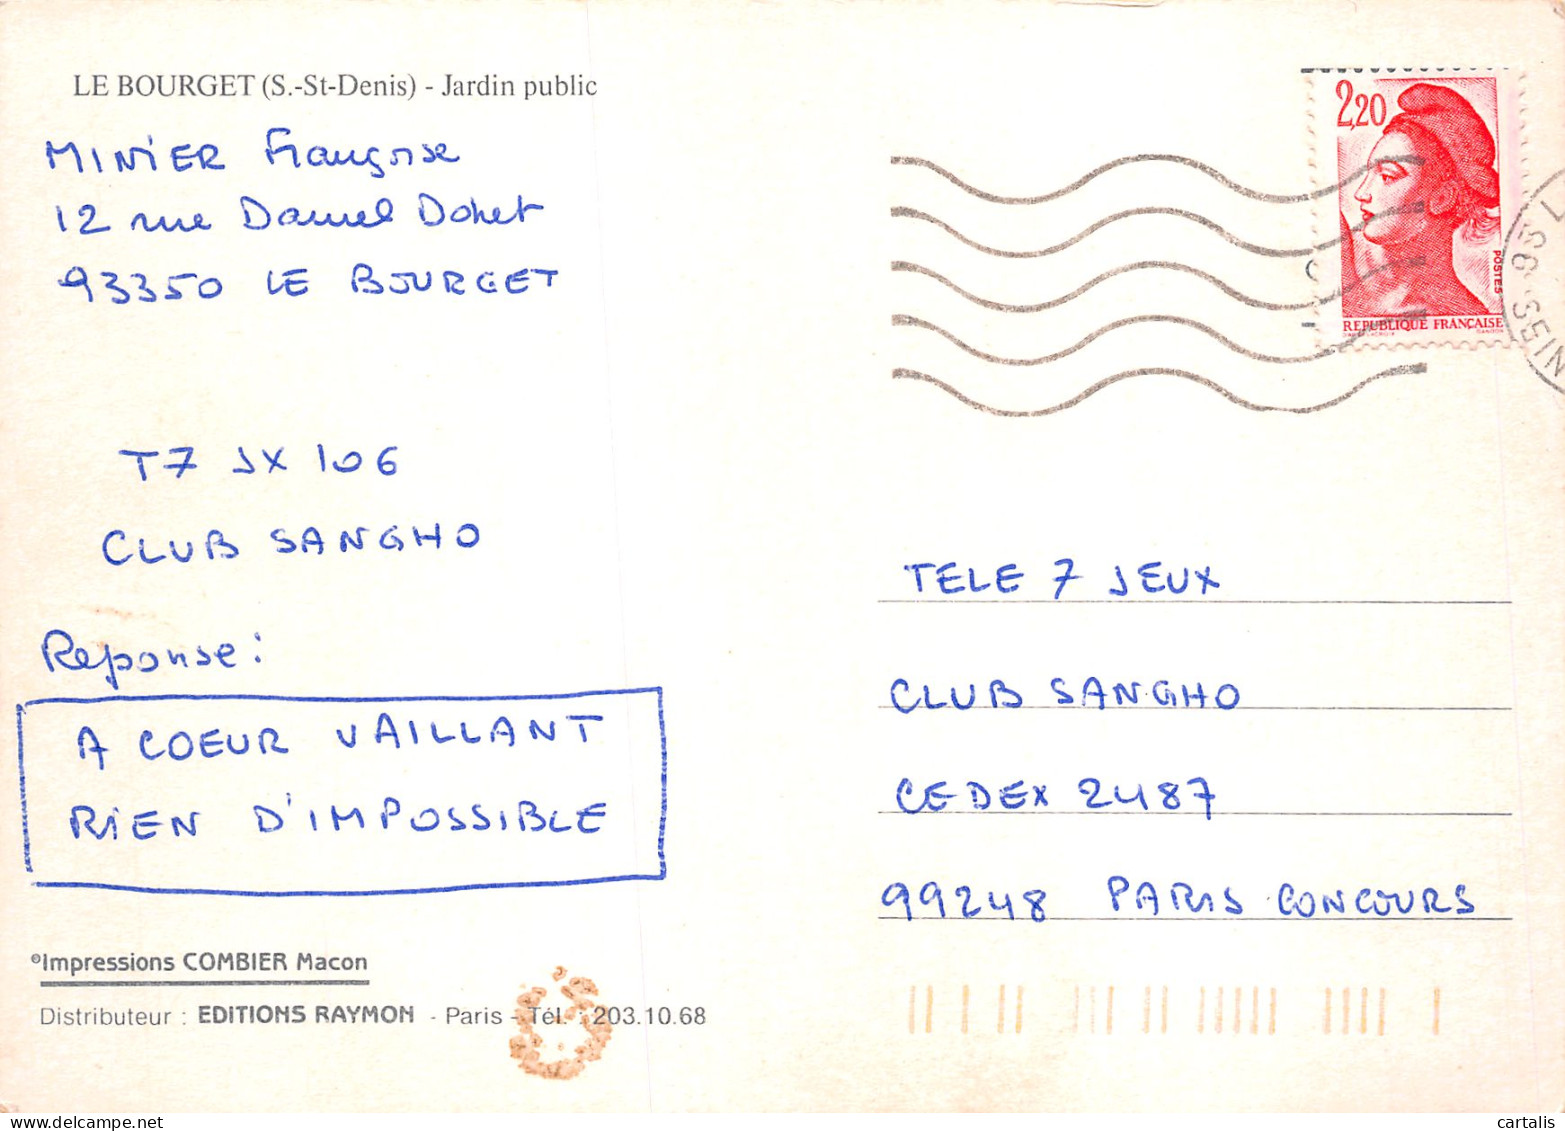 LE BOURGET (S.-St-Denis) - Jardin public
MINIER Françoise
12 rue Daniel Dohet
93350 LE BOURGET
T7 JX 106
CLUB SANGHO
Reponse:
A COEUR VAILLANT
RIEN D'IMPOSSIBLE
©Impressions COMBIER Macon
Distributeur : EDITIONS RAYMON - Paris - Tél. : 203.10.68
2,20
POSTES
REPUBLIQUE FRANÇAISE
TELE 7 JEUX
CLUB SANGHO
CEDEX 2487
99248 PARIS CONCOURS
cartalis
www.delcampe.net